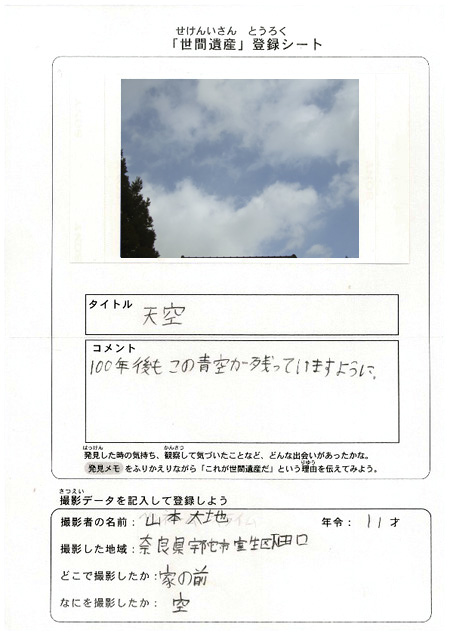 せけんいさん とうろく
「世間遺産」登録シート
タイトル
天空
コメント
100年後もこの青空が残っていますように。
はっけん かんさつ
発見した時の気持ち、観察して気づいたことなど、どんな出会いがあったかな。
りゆう
発見メモ をふりかえりながら「これが世間遺産だ」という理由を伝えてみよう。
さつえい
撮影データを記入して登録しよう
撮影者の名前：山本大地 年令：11才
撮影した地域：奈良県宇陀市室生区田口
どこで撮影したか：家の前
なにを撮影したか：空